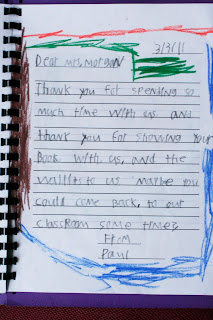 3/3/11
Dear Mrs. Morgan
Thank you for spending so
much time with us and
thank you for showing your
book with us, and the
to us maybe you
could come back, to our
classroom some times
From
Paul